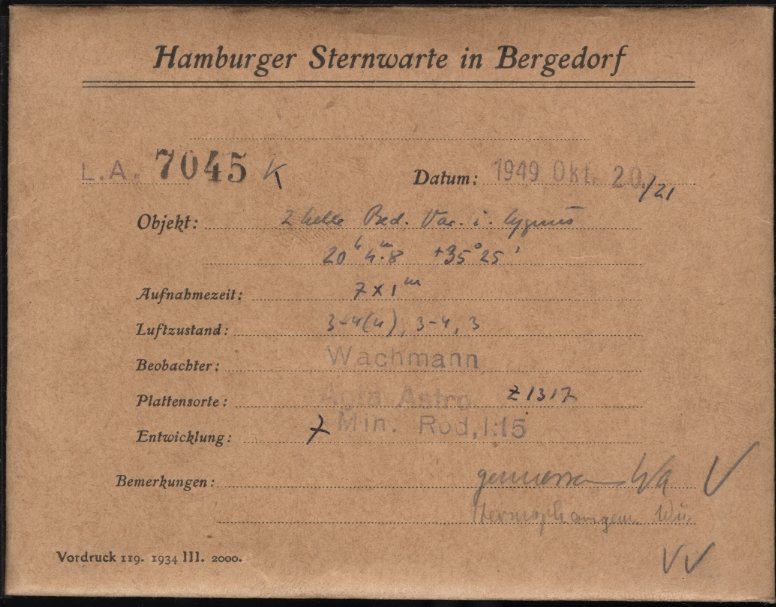 Hamburger Sternwarte in Bergedorf
L.A. 7045 K Datum: 1949 Okt. 20./21
Objekt: 2 helle Bed. Var. i. Cygnus
20ʰ 4ᵐ.8 +35° 25'
Aufnahmezeit: 7x1ᵐ
Luftzustand: 3-4(4), 3-4, 3
Beobachter: Wachmann
Plattensorte: Agfa Astro Z1317
Entwicklung: 7 Min. Rod, 1:15
Bemerkungen: gemessen Wa V
Wü.
VV
Vordruck 119. 1934 III. 2000.